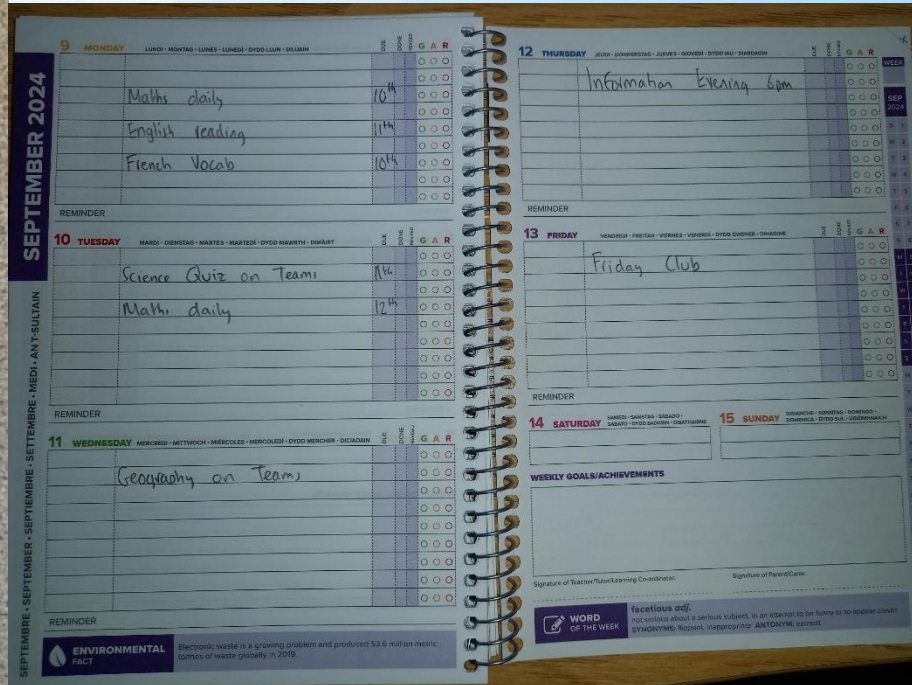 SEPTEMBER 2024
SEPTEMBER • SEPTEMBRE • SEPTIEMBRE • SETTEMBRE • MEDI • ANT-SULTAIN
9 MONDAY LUNDI • MONTAG • LUNES • LUNEDÌ • DYDD LLUN • DILUAIN DUE DONE G A R
Maths daily 10th
English reading 11th
French Vocab 10th
REMINDER
10 TUESDAY MARDI • DIENSTAG • MARTES • MARTEDÌ • DYDD MAWRTH • DIMÁIRT DUE DONE G A R
Science Quiz on Teams
Maths daily 12th
REMINDER
11 WEDNESDAY MERCREDI • MITTWOCH • MIÉRCOLES • MERCOLEDÌ • DYDD MERCHER • DICIADAIN DUE DONE G A R
Geography on Teams
REMINDER
ENVIRONMENTAL FACT
Electronic waste is a growing problem and produced 53.6 million metric
tonnes of waste globally in 2019.
12 THURSDAY JEUDI • DONNERSTAG • JUEVES • GIOVEDÌ • DYDD IAU • DIARDAOIN DUE DONE G A R
Information Evening 6pm
REMINDER
13 FRIDAY VENDREDI • FREITAG • VIERNES • VENERDÌ • DYDD GWENER • DUE DONE G A R
Friday Club
REMINDER
14 SATURDAY SAMEDI • SAMSTAG • SÁBADO •
SABATO • DYDD SADWRN •
15 SUNDAY DIMANCHE • SONNTAG • DOMINGO •
DOMENICA • DYDD SUL •
WEEKLY GOALS/ACHIEVEMENTS
Signature of Teacher/Tutor/Learning Co-ordinator:
Signature of Parent/Carer:
WORD OF THE WEEK
facetious adj.
not serious about a serious subject, in an attempt to be funny or to appear clever
SYNONYMS: flippant, inappropriate ANTONYM: earnest
WEEK
SEP
2024